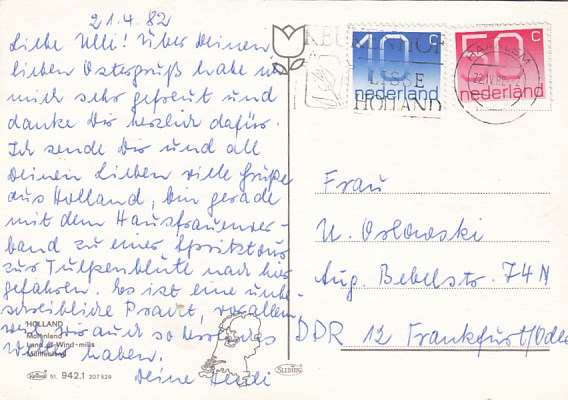 21.4.82
Liebe Ulli! Über Deinen
lieben Ostergruß habe ich
mich sehr gefreut und
danke Dir herzlich dafür.
Ich sende Dir und all
Deinen Lieben viele Grüße
aus Holland, bin gerade
mit dem Hausfrauenver-
band zu einer Spritztour
zur Tulpenblüte nach hier
gefahren. Es ist eine unbe-
schreibliche Pracht, vor allem
wir auch so
haben.
Deine Heidi
HOLLAND
Molenland
Land of Wind-mills
Mühlenland
61. 942.1 207529
KEUKENHOF
LISSE
HOLLAND
10 c
nederland
50 c
nederland
HAARLEM
22.IV.82
Frau
U. Orlowski
Aug. Bebelstr. 74N
DDR 12 Frankfurt/Oder
SLEDING